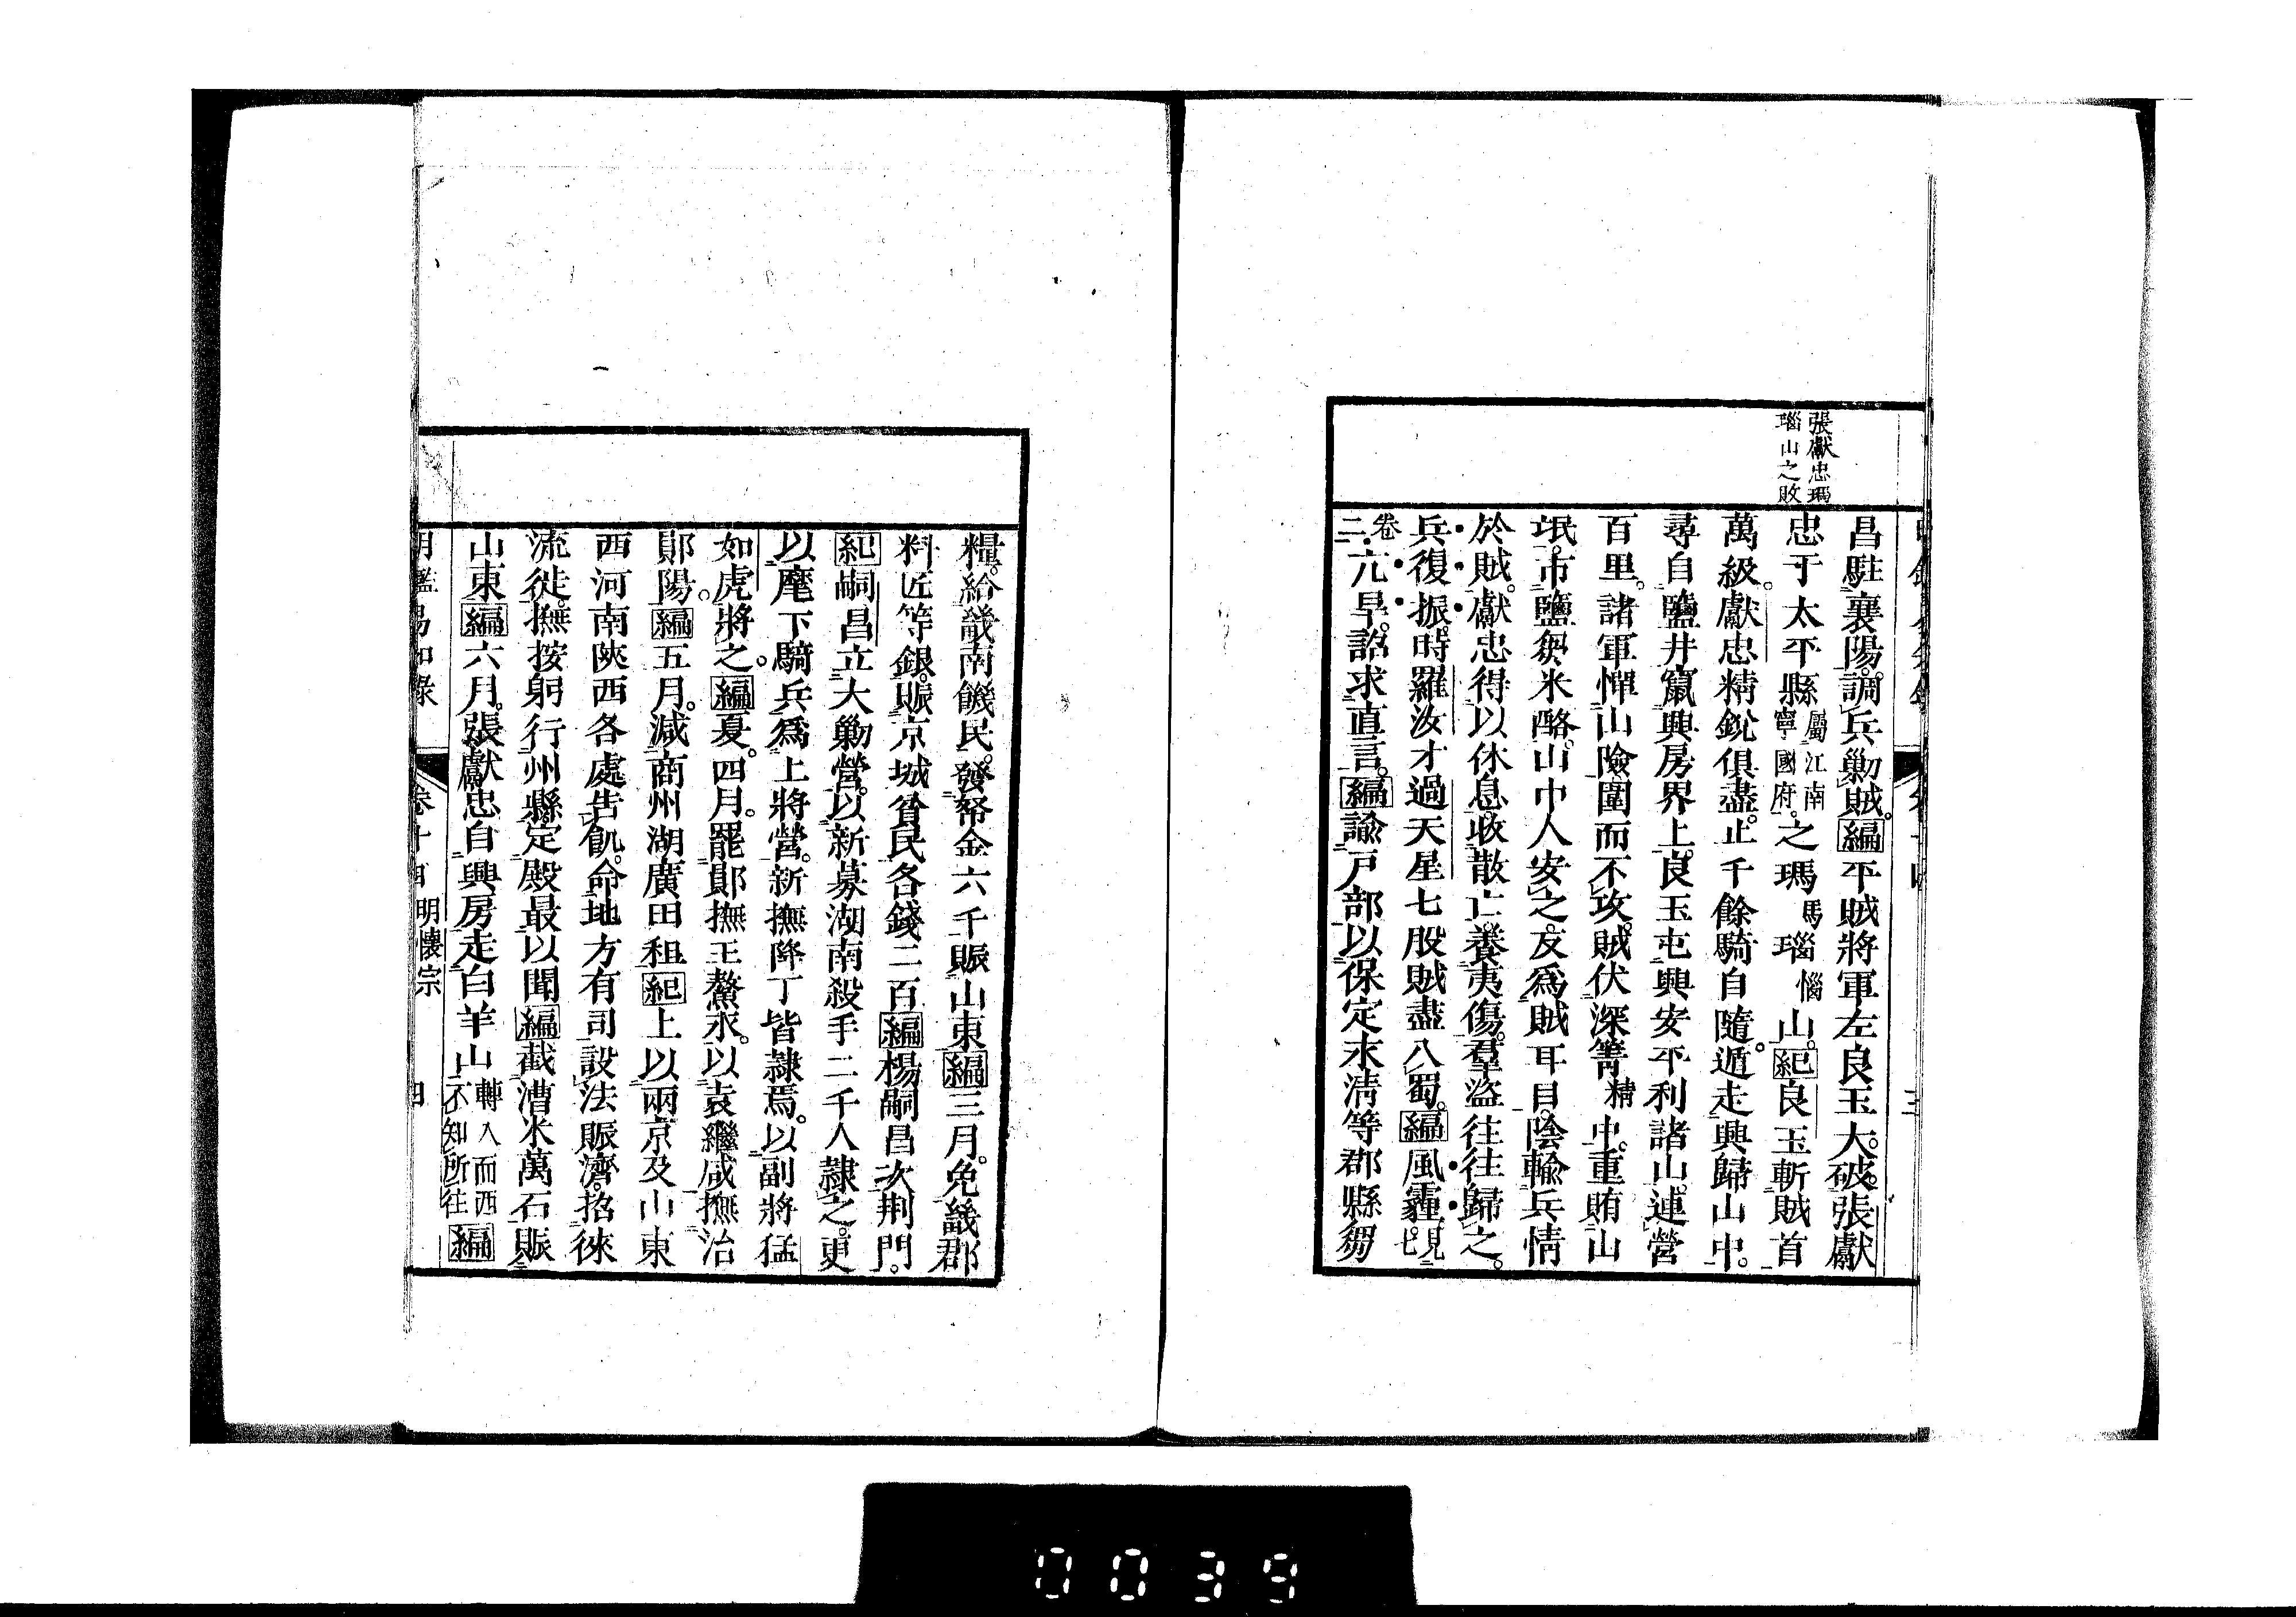 張獻忠瑪
瑙山之敗
昌駐襄陽。調兵勦賊。編平賊將軍左良玉大破。張獻
忠于太平縣屬江南寧國府。之瑪馬瑙惱山。紀良玉斬賊首
萬級。獻忠精銳俱盡。止千餘騎自隨。遁走興歸山中。
尋自鹽井竄興房界上。良玉屯興安平利諸山。連營
百里。諸軍憚山險。圍而不攻。賊伏深箐精中。重賄山
氓。市鹽芻米酪。山中人安之。反爲賊耳目。陰輸兵情
於賊。獻忠得以休息。收散亡。養夷傷。羣盜往往歸之。
兵復振。時羅汝才過天星七股賊盡入蜀。編風霾見七
卷二亢旱。詔求直言。編諭戸部以保定永淸等郡縣芻
糧。給畿南饑民。發帑金六千賑山東編三月。免畿郡
料匠等銀。賑京城貧民各錢二百編楊嗣昌次荆門。
紀嗣昌立大勦營。以新募湖南殺手二千人隸之。更
以麾下騎兵爲上將營。新撫降丁皆隸焉。以副將猛
如虎將之。編夏。四月。罷鄖撫王鰲永。以袁繼咸撫治
鄖陽。編五月。減商州湖廣田租紀上以兩京及山東
西河南陝西各處告飢。命地方有司設法賑濟。招徠
流徙。撫按躬行州縣。定殿最以聞編截漕米萬石賑
山東編六月。張獻忠自興房走白羊山轉入而西不知所往編
明鑑易知錄 卷十四 明懷宗 四
0039